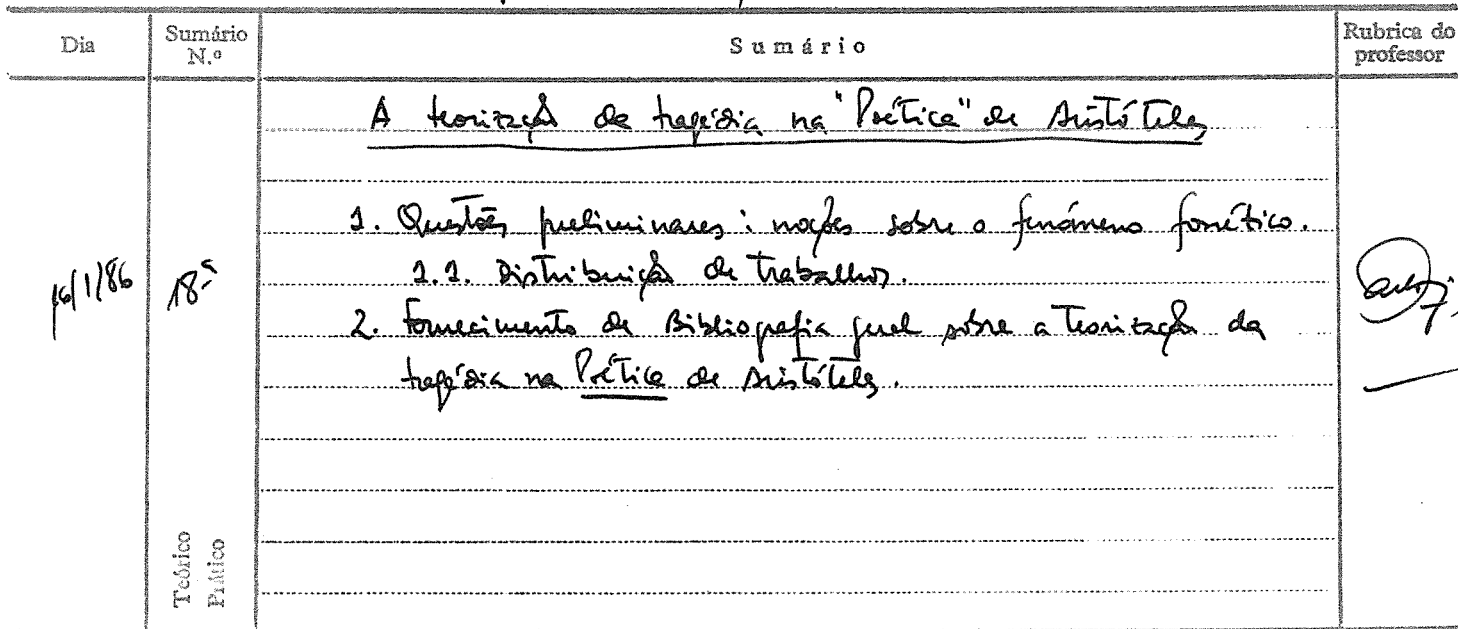 Dia
Sumário N.º
Sumário
Rubrica do professor
A teorização da tragédia na "Poética" de Aristóteles
16/1/86
18ª
1. Questões preliminares: noções sobre o fenómeno
1.1. Distribuição de trabalhos.
2. Fornecimento de Bibliografia geral sobre a teorização da
tragédia na Poética de Aristóteles.
Teórico
Prático